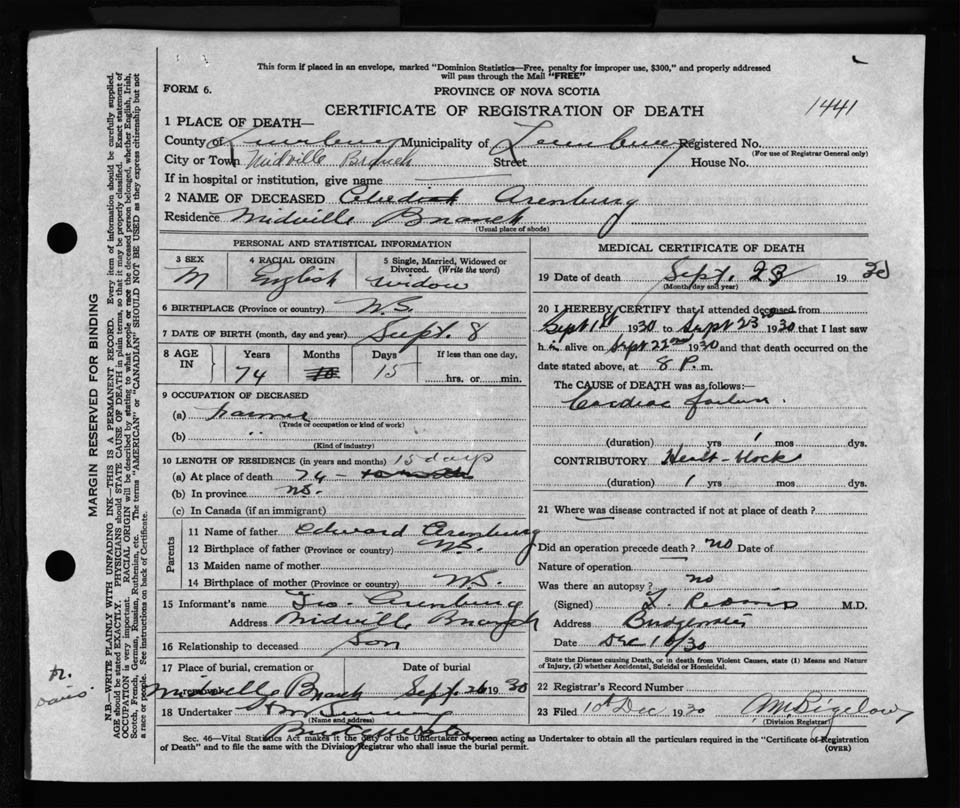 This form if placed in an envelope, marked "Dominion Statistics—Free, penalty for improper use, $300," and properly addressed
will pass through the Mail "FREE"
FORM 6.
PROVINCE OF NOVA SCOTIA
CERTIFICATE OF REGISTRATION OF DEATH
1441
1 PLACE OF DEATH—
County of Lunenburg Municipality of Lunenburg Registered No.
(For use of Registrar General only)
City or Town Midville Branch Street House No.
If in hospital or institution, give name
2 NAME OF DECEASED Arenburg
Residence Midville Branch
(Usual place of abode)
PERSONAL AND STATISTICAL INFORMATION
3 SEX M
4 RACIAL ORIGIN English
5 Single, Married, Widowed or Divorced. (Write the word) widow
6 BIRTHPLACE (Province or country) N.S.
7 DATE OF BIRTH (month, day and year) Sept 8
8 AGE IN Years Months Days If less than one day,
74 15 hrs. or min.
9 OCCUPATION OF DECEASED
(a) Farmer
(Trade or occupation or kind of work)
(b) "
(Kind of industry)
10 LENGTH OF RESIDENCE (in years and months) 15 days
(a) At place of death 74 -
(b) In province N.S.
(c) In Canada (if an immigrant)
Parents
11 Name of father Edward Arenburg
12 Birthplace of father (Province or country) N.S.
13 Maiden name of mother
14 Birthplace of mother (Province or country) N.S.
15 Informant's name Geo. Arenburg
Address Midville Branch
16 Relationship to deceased Son
17 Place of burial, cremation or removal Date of burial
Midville Branch Sept. 26 1930
18 Undertaker
(Name and address)
Bridgewater
MEDICAL CERTIFICATE OF DEATH
19 Date of death Sept. 23 1930
(Month, day and year)
20 I HEREBY CERTIFY that I attended deceased from
Sept 1st 1930 to Sept 23rd 1930 that I last saw
h im alive on Sept 22nd 1930 and that death occurred on the
date stated above, at 8 P. m.
The CAUSE of DEATH was as follows:—
Cardiac failure.
(duration) yrs 1 mos dys.
CONTRIBUTORY Heart-block
(duration) 1 yrs mos dys.
21 Where was disease contracted if not at place of death?
Did an operation precede death? no Date of
Nature of operation
Was there an autopsy? no
(Signed) M.D.
Address Bridgewater
Date Dec 10/30
State the Disease causing Death, or in death from Violent Causes, state (1) Means and Nature
of Injury, (2) whether Accidental, Suicidal or Homicidal.
22 Registrar's Record Number
23 Filed 10th Dec 1930 A.M. Bigelow
(Division Registrar)
Sec. 46—Vital Statistics Act makes it the duty of the Undertaker or person acting as Undertaker to obtain all the particulars required in the "Certificate of Registration
of Death" and to file the same with the Division Registrar who shall issue the burial permit.
(OVER)
MARGIN RESERVED FOR BINDING
N.B.—WRITE PLAINLY WITH UNFADING INK—THIS IS A PERMANENT RECORD. Every item of information should be carefully supplied.
AGE should be stated EXACTLY. PHYSICIANS should STATE CAUSE OF DEATH in plain terms, so that it may be properly classified. Exact statement of
OCCUPATION is very important. RACIAL ORIGIN will be described by stating to what people or race the deceased person belonged, whether English, Irish,
Scotch, French, German, Russian, Ruthenian, etc. The terms "AMERICAN" or "CANADIAN" SHOULD NOT BE USED as they express citizenship but not
a race or people. See instructions on back of Certificate.